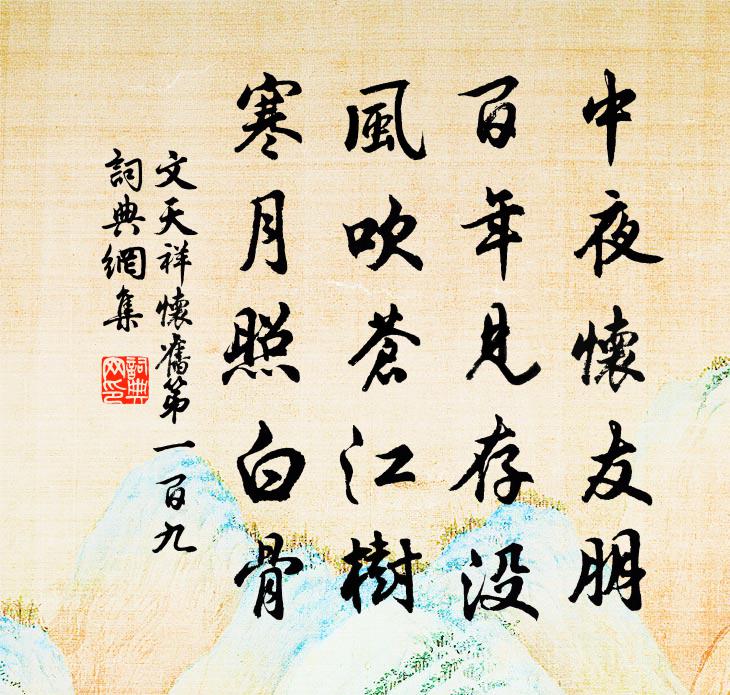 中夜懷友朋
百年見存没
風吹蒼江樹
寒月照白骨
文天祥懷舊第一百九
詞典網集
詞典網印